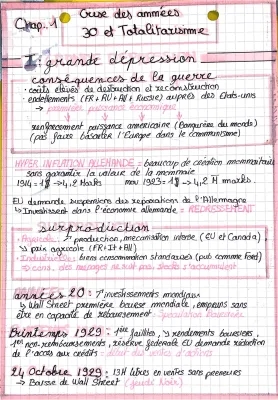 Chap. 1
Crise des années
30 et Totalitarisme
I: grande dépression
conséquences de la guerre
• coûts élevés de destruction et reconstruction
• endettements (FR + RU + All + Russie) auprès des Etats-unis
→ première puissance économique
renforcement puissance américaine (banquière du monde)
(pas faire basculer l'Europe dans le communisme)
HYPER INFLATION ALLEMANDE = beaucoup de création monnaitaire
sans garantir la valeur de la monnaie
1914 = 1$ → 4,2 Marks nov 1923 = 1$ → 4,2 M marks
EU demande suspensions des reparations de l'Allemagne
↳ Investissent dans l'économie allemande = REDRESSEMENT
surproduction
• Agricole: production, mecanisation intense (EU et Canada),
↳ prix agricole (FR + IT + All)
• Industrielle: biens consommation standardisés (pub comme Ford)
⇒ cons. des menages ne suit pas stocks s'accumulent
années 20: 7° investissements mondiaux
↳ Wall Street première bourse mondiale, emprunts sans
être en capacité de remboursement. Spéculation boursière
Printemps 1929: 1ère faillites, ↘ rendements boursiers,
1er non-remboursements, réserve federale EU demande réduction
de l'accès aux crédits = début des ventes d'actions
24 Octobre 1929: 13M titres en ventes sans preneurs
→ Baisse de Wall Street (jeudi Noir)